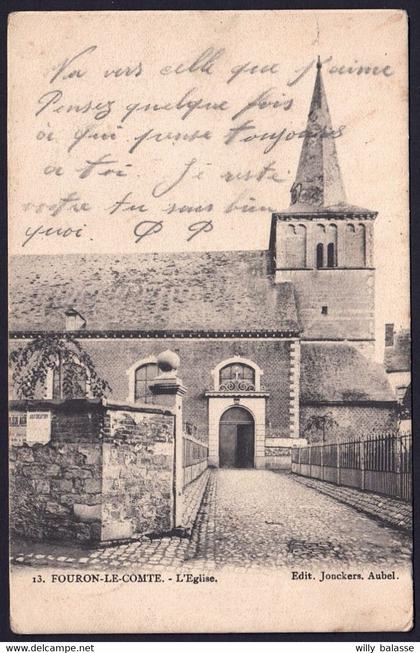 Va vers celle que j'aime
Pensez quelque fois
à qui pense toujours
à toi. Je reste
votre tu sais bien
quoi
13. FOURON-LE-COMTE. - L'Eglise.
Edit. Jonckers, Aubel.
willy balasse